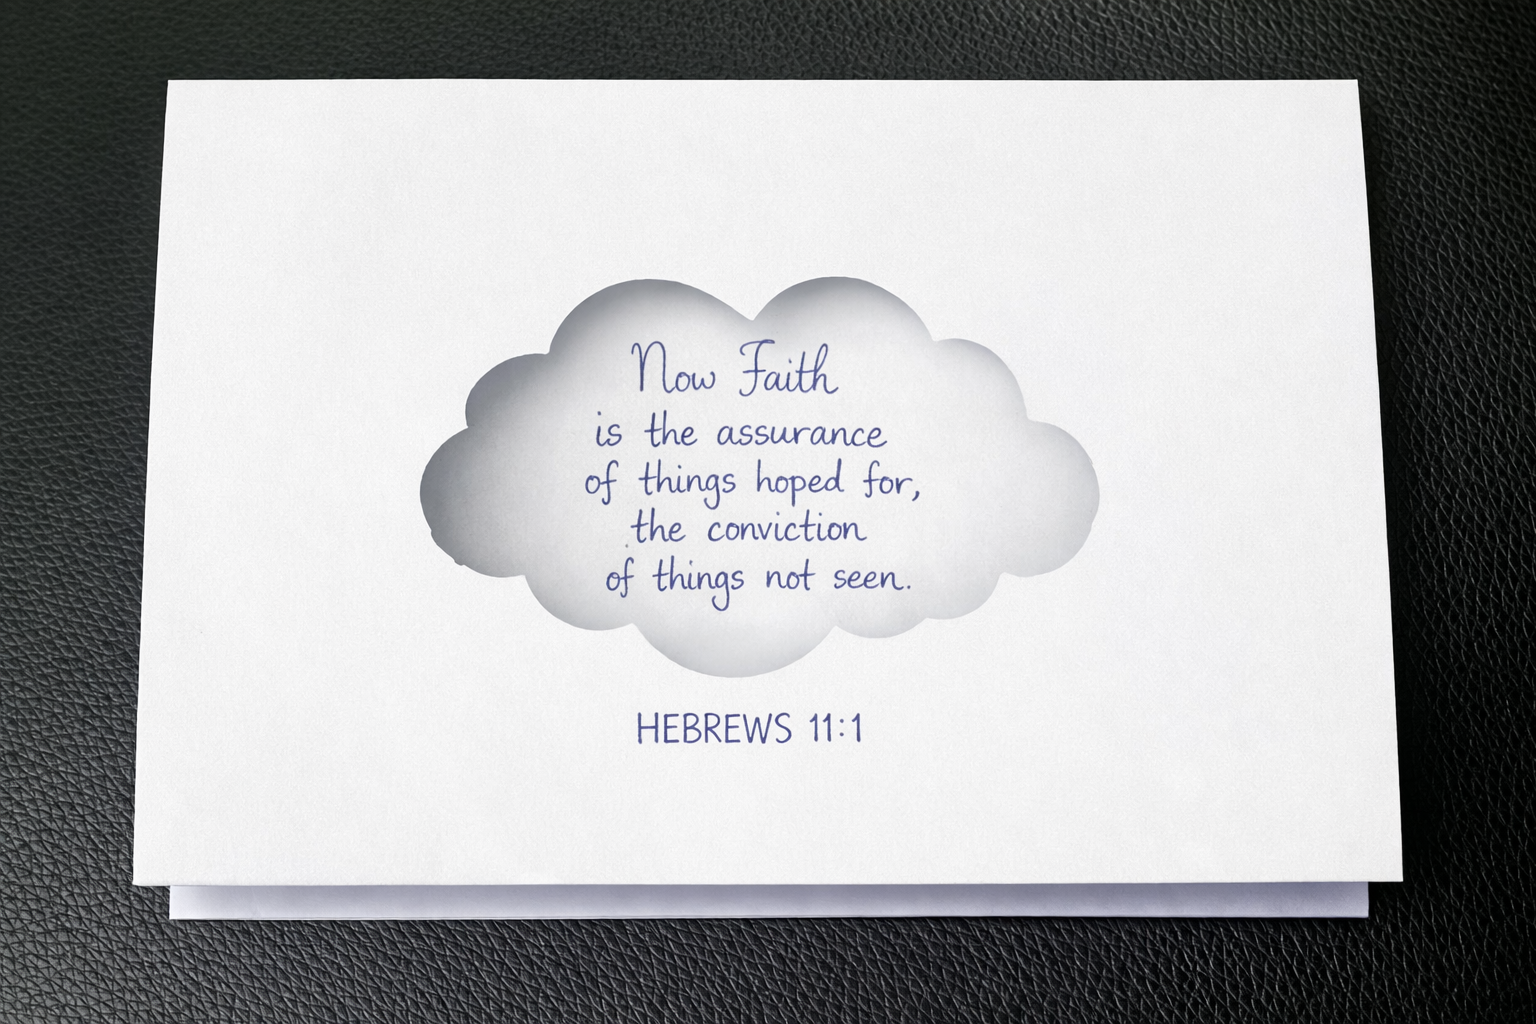 Now Faith
is the assurance
of things hoped for,
the conviction
of things not seen.
HEBREWS 11:1